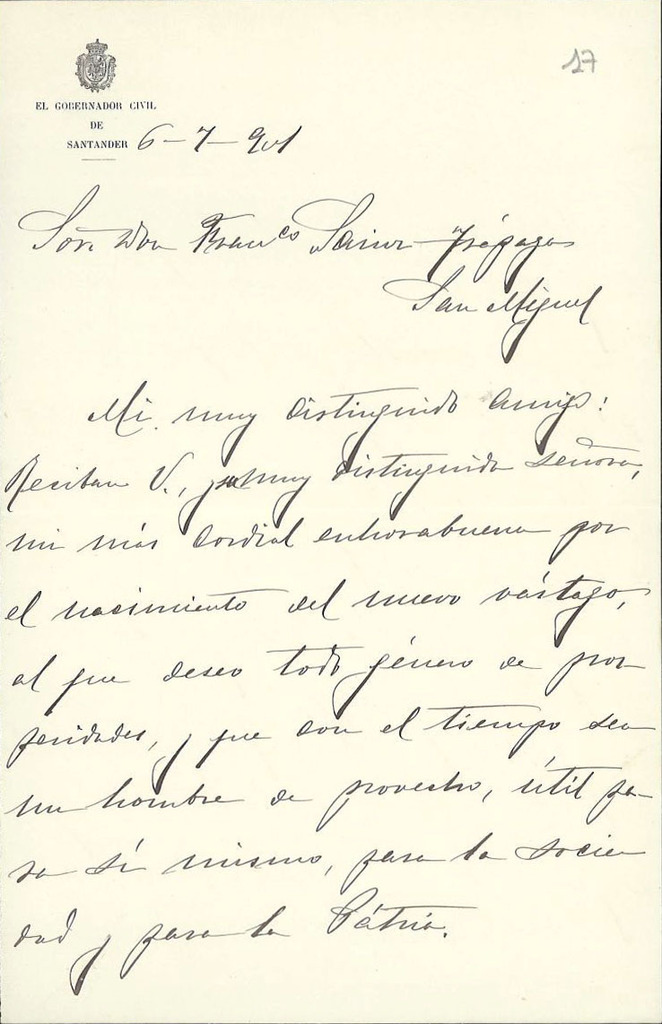 17
EL GOBERNADOR CIVIL
DE
SANTANDER 6-7-901
Sor. Don Franco Sainz-Trápaga
San Miguel
Mi muy distinguido amigo:
Reciban V., y su muy distinguida señora,
mi más cordial enhorabuena por
el nacimiento del nuevo vástago,
al que deseo todo género de pros
peridades, y que con el tiempo sea
un hombre de provecho, útil pa-
ra sí mismo, para la socie
dad y para la Pátria.